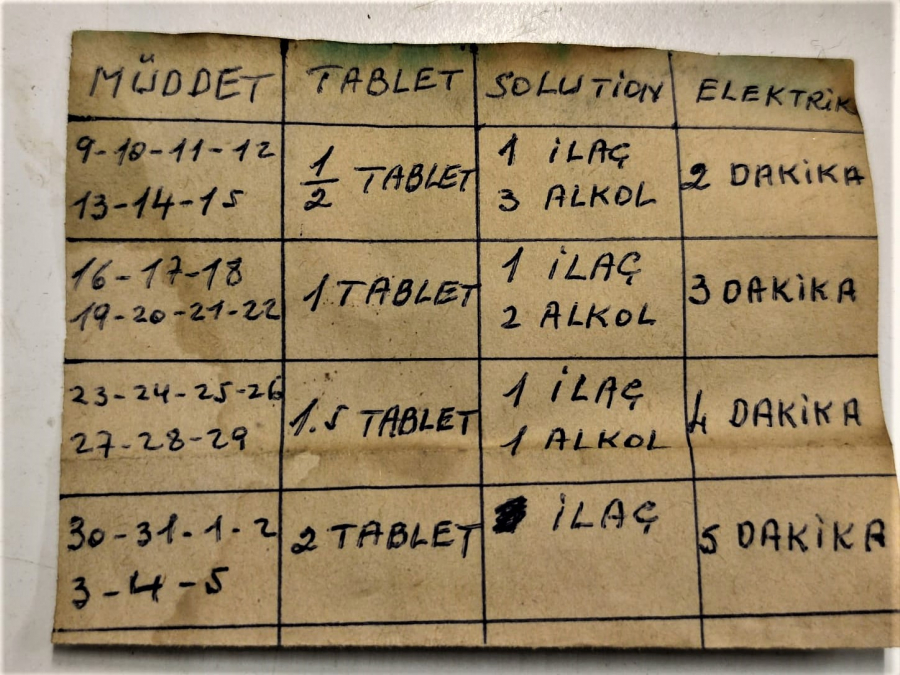 MÜDDET TABLET SOLUTİON ELEKTRİK
9-10-11-12
13-14-15
1/2 TABLET
1 İLAÇ
3 ALKOL
2 DAKİKA
16-17-18
19-20-21-22
1 TABLET
1 İLAÇ
2 ALKOL
3 DAKİKA
23-24-25-26
27-28-29
1.5 TABLET
1 İLAÇ
1 ALKOL
4 DAKİKA
30-31-1-2
3-4-5
2 TABLET
İLAÇ
5 DAKİKA